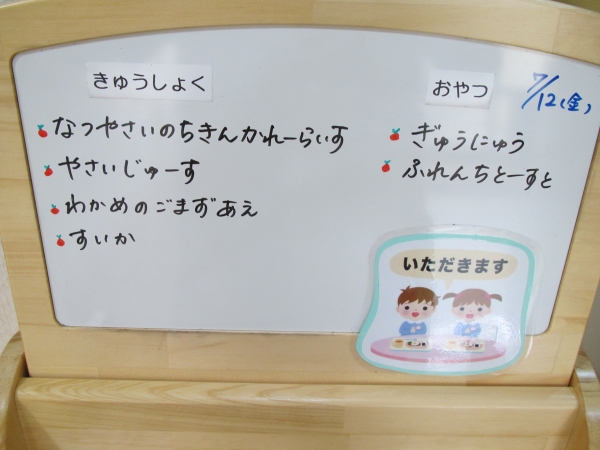 きゅうしょく
なつやさいのちきんかれーらいす
やさいじゅーす
わかめのごまずあえ
すいか
おやつ
7/12(金)
ぎゅうにゅう
ふれんちとーすと
いただきます